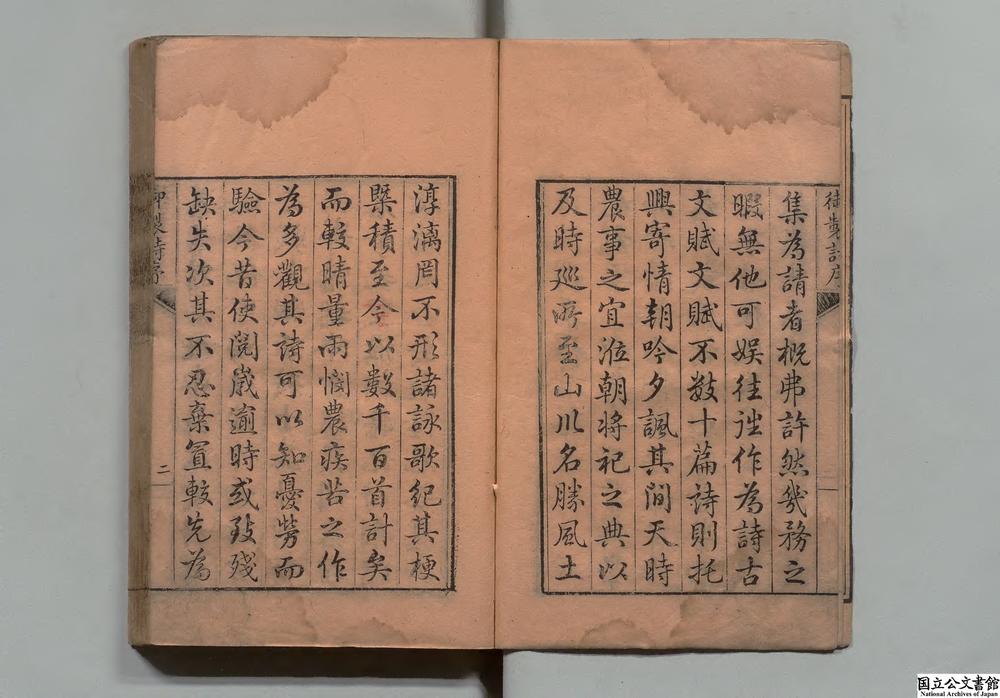 御製詩序
集為請者概弗許然幾務之
暇無他可娛往往作為詩古
文賦文賦不數十篇詩則托
興寄情朝吟夕諷其間天時
農事之宜涖朝將祀之典以
及時廵所至山川名勝風土
淳漓罔不形諸詠歌紀其梗
槩積至今以數千百首計矣
而較晴量雨憫農疾苦之作
為多觀其詩可以知憂勞而
驗今昔使閱歲逾時或致殘
缺失次其不忍棄置較先為
御製詩序
二
国立公文書館
National Archives of Japan